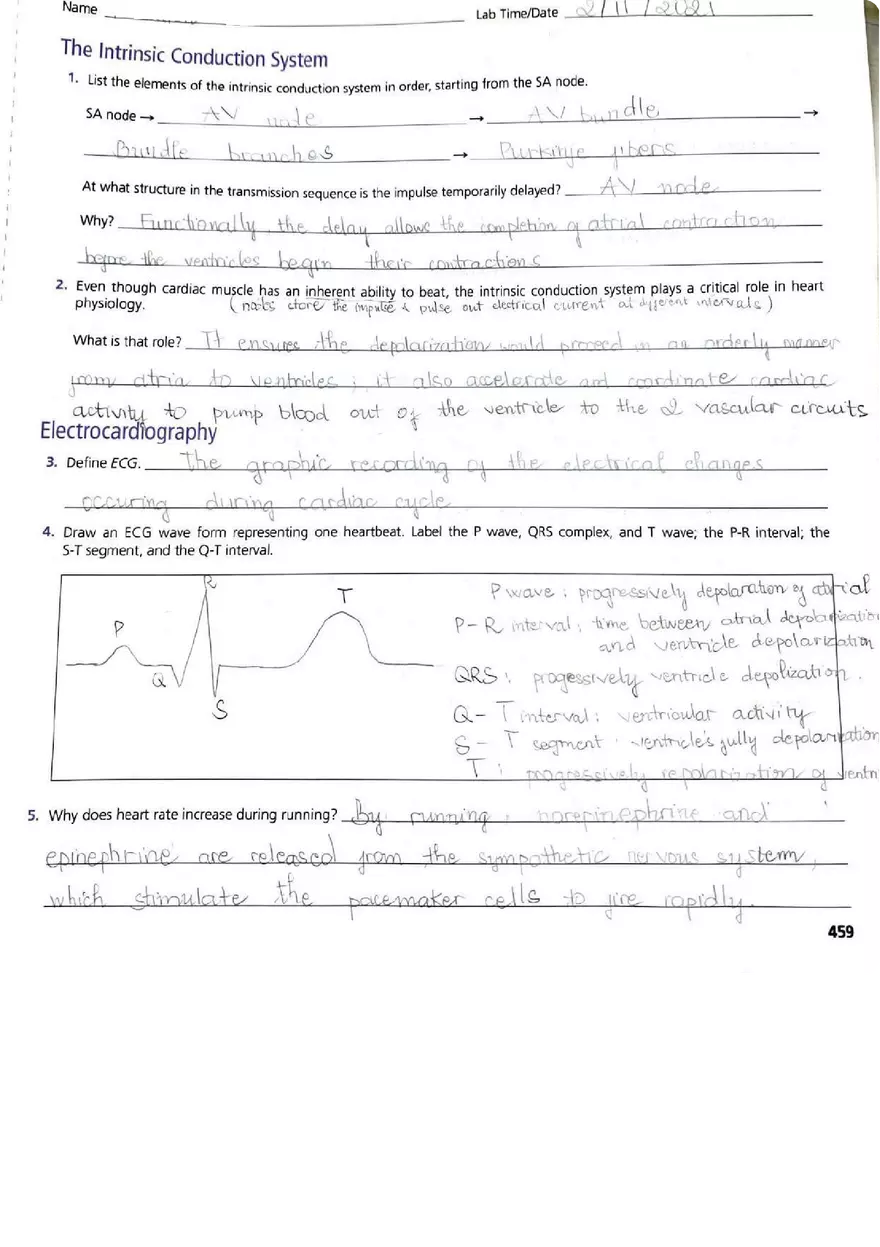 Name
Lab Time/Date 2/11/2021
The Intrinsic Conduction System
1. List the elements of the intrinsic conduction system in order, starting from the SA node.
SA node → AV node → AV bundle →
Bundle branches → Purkinje fibers
At what structure in the transmission sequence is the impulse temporarily delayed? AV node
Why? Functionally, the delay allows the completion of atrial contraction
before the ventricles begin their contractions
2. Even though cardiac muscle has an inherent ability to beat, the intrinsic conduction system plays a critical role in heart
physiology. (nodes store the impulse & pulse out electrical current at different intervals)
What is that role? It ensures the depolarization would proceed in an orderly manner
from atria to ventricles ; it also accelerate and coordinate cardiac
activity to pump blood out of the ventricle to the 2 vascular circuits
Electrocardiography
3. Define ECG. The graphic recording of the electrical changes
occuring during cardiac cycle
4. Draw an ECG wave form representing one heartbeat. Label the P wave, QRS complex, and T wave; the P-R interval; the
S-T segment, and the Q-T interval.
R
T
P
Q
S
P wave : progressively depolaration of atrial
P-R interval : time between atrial depolarization
and ventricle depolarization
QRS : progessively ventricle depolization.
Q-T interval : ventrioular activity
S-T segment : ventricle's fully depolarization
T : progressively repolarization of ventri
5. Why does heart rate increase during running? By running, norepinephrine and
epinephrine are released from the sympathetic nervous system,
which stimulate the pacemaker cells to fire rapidly.
459